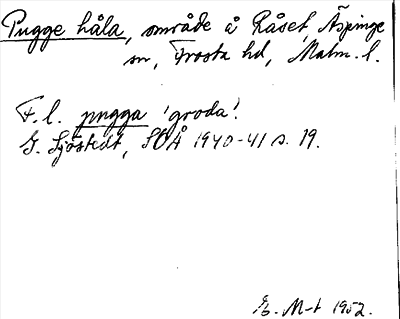 Pugge håla, område å Råset, Äspinge
sn, Frosta hd, Malm. l.
F. l. pugga 'groda'.
G. Sjöstedt, SOÅ 1940-41 s. 19.
Eb. M-t 1952.